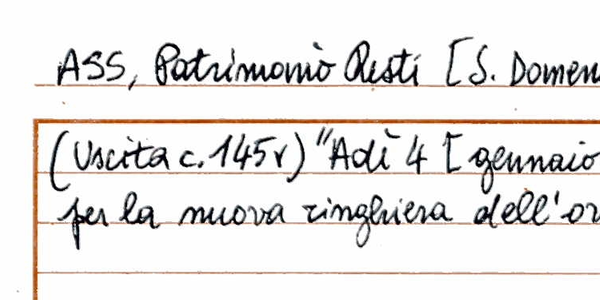 ASS, Patrimonio Resti [S. Domen
(Uscita c. 145v) "Adì 4 [gennaio
per la nuova ringhiera dell'or